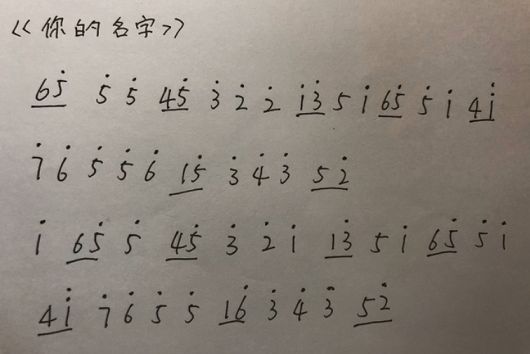 《你的名字》
65̇ 5̇ 5̇ 45̇ 3̇ 2̇ 2̇ 1̇3̇ 5 1̇ 65̇ 5̇ 1̇ 41̇
7̇ 6̇ 5̇ 5̇ 6̇ 15̇ 3̇ 4̇ 3̇ 52̇
1̇ 65̇ 5̇ 45̇ 3̇ 2̇ 1̇ 1̇3̇ 5 1̇ 65̇ 5̇ 1̇
41̇ 7̇ 6̇ 5̇ 5̇ 16̇ 3̇ 4̇ 3̇ 52̇